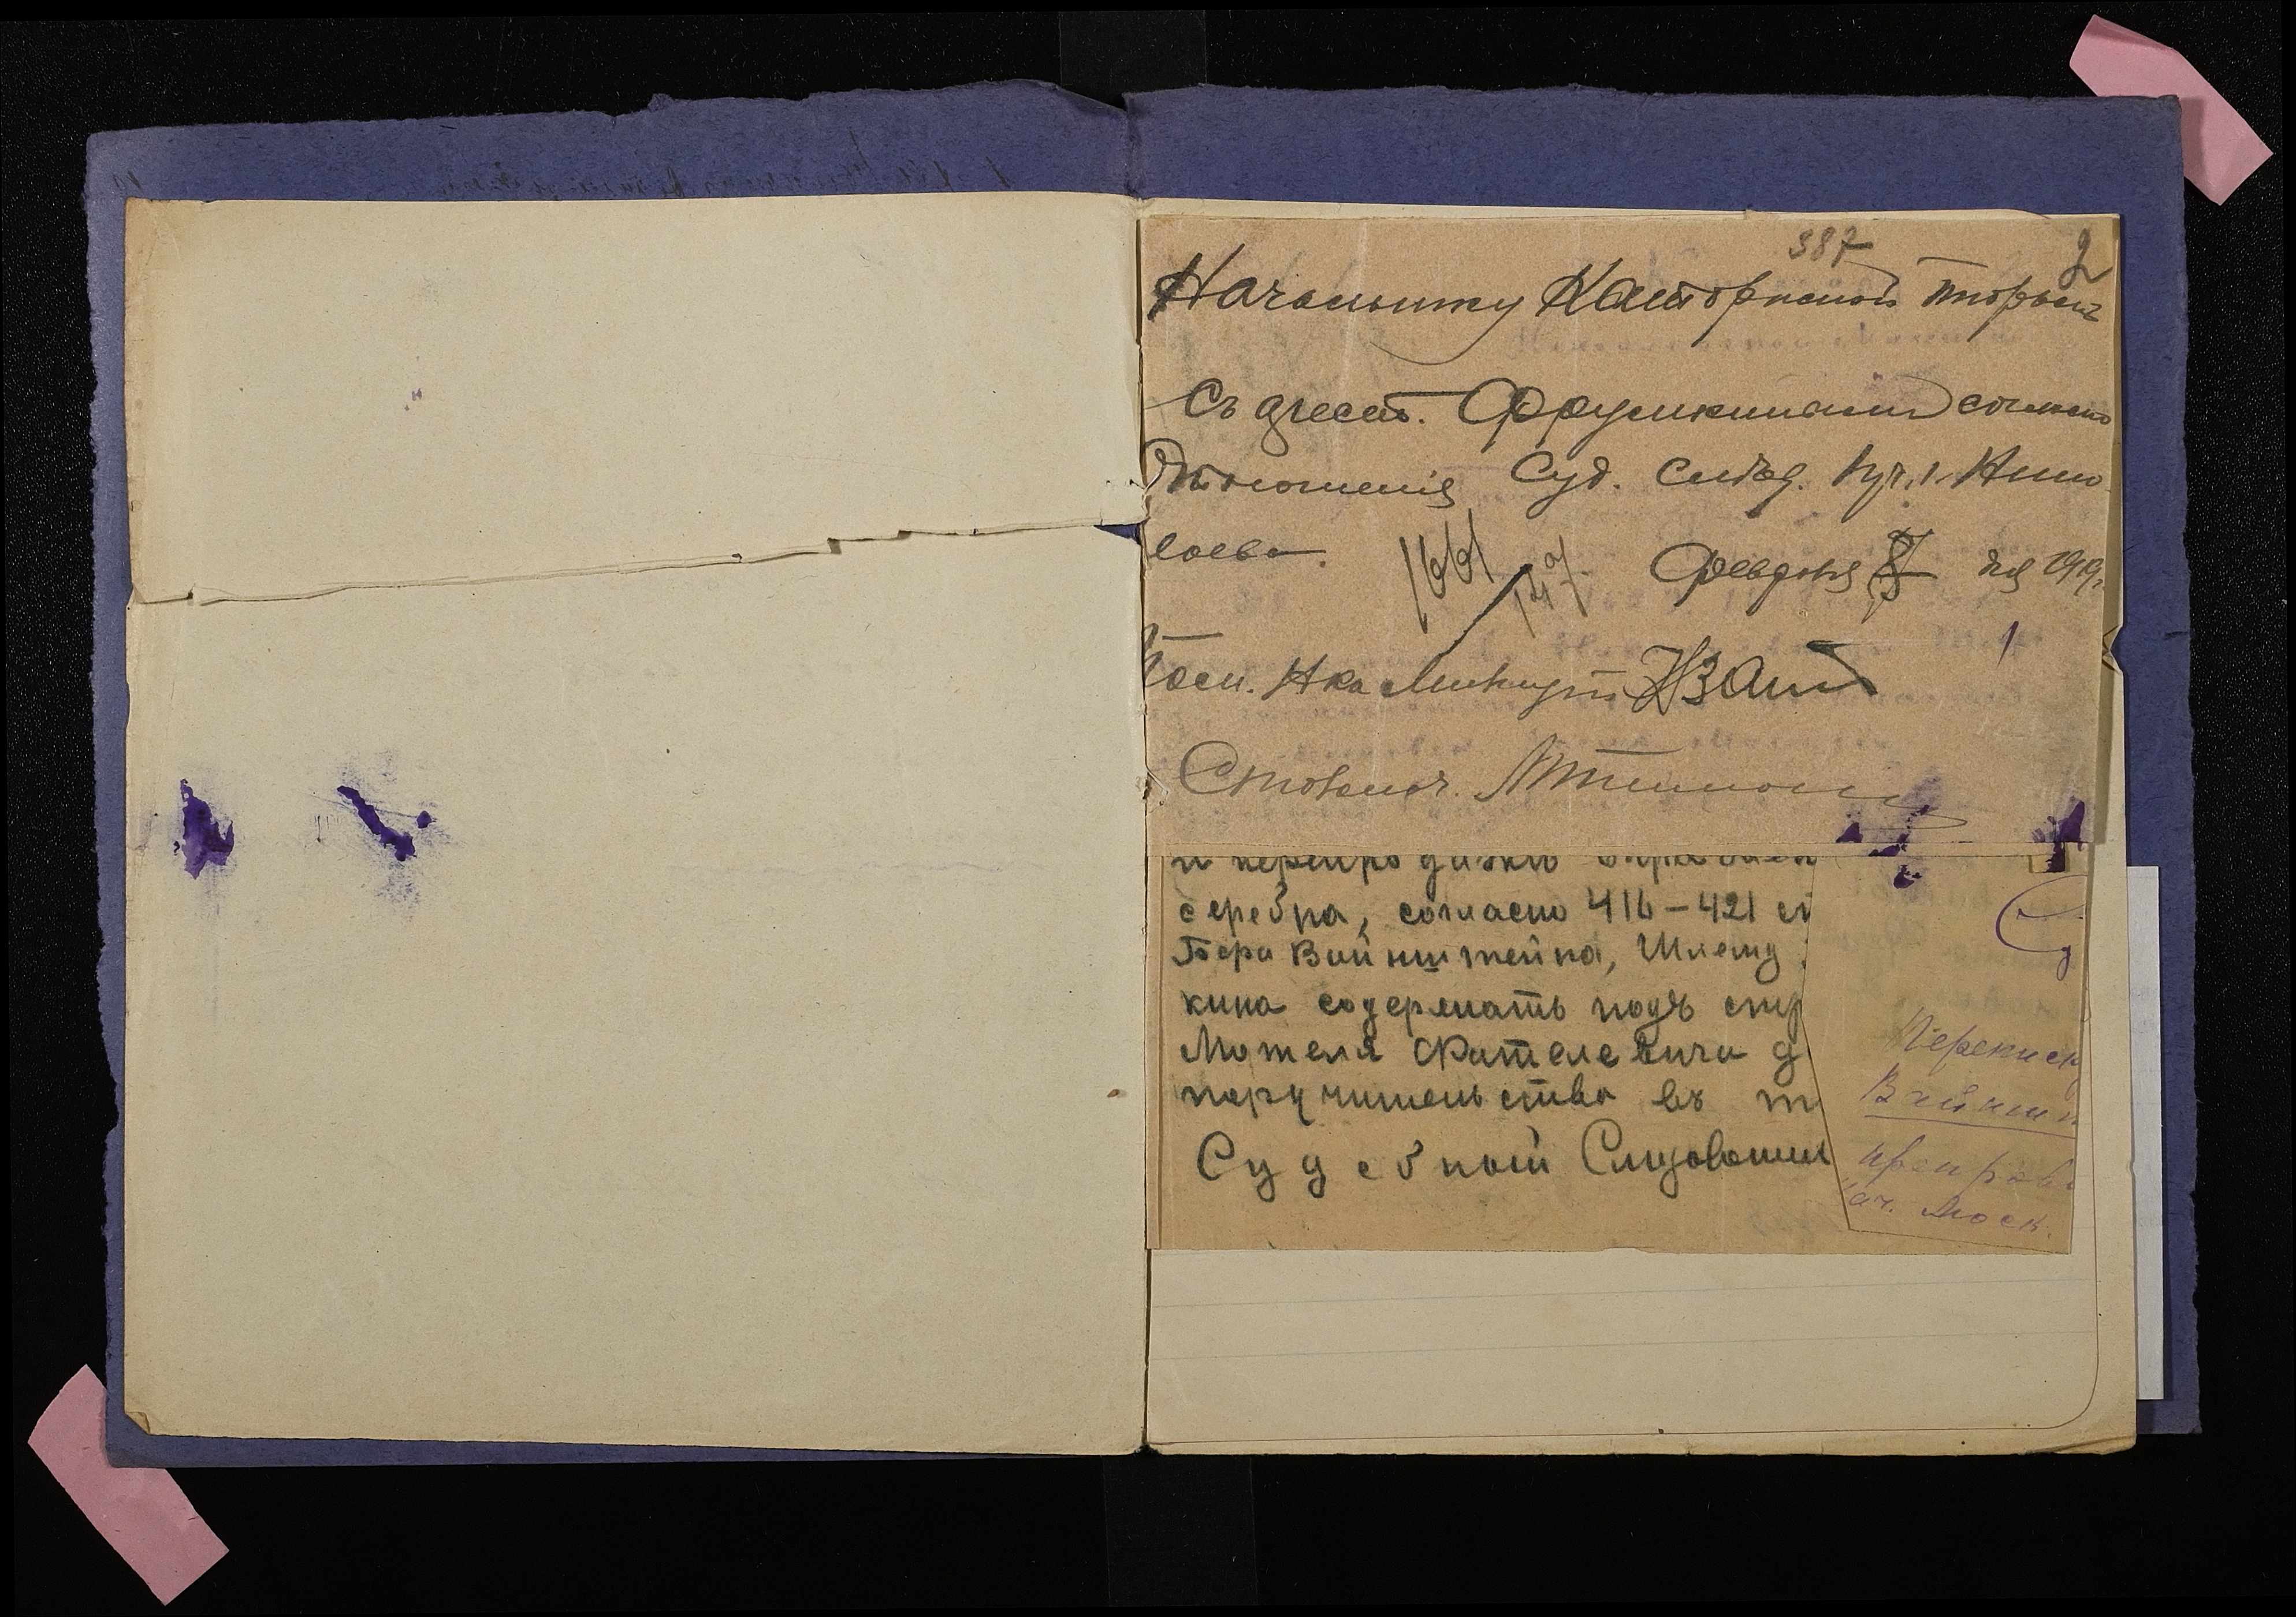 387
2
Начальнику Каторжной тюрьмы
Съ арест. Фрумкинымъ согласно
Отношенія Суд. Слѣд. 1 уч. г. Нико
лаева.
1661
147
Февраля 8 дня 1919 г.
1
Пом. Нка
Столонач.
и перепродажи
серебра, согласно 416-421 ст
Бера Вайнштейна, Шлему
кина содержать подъ стр
Мотеля д
поручительство въ т
Судебный Слѣдовател
Переписк
Вайншт
препрово
ач. Моск.